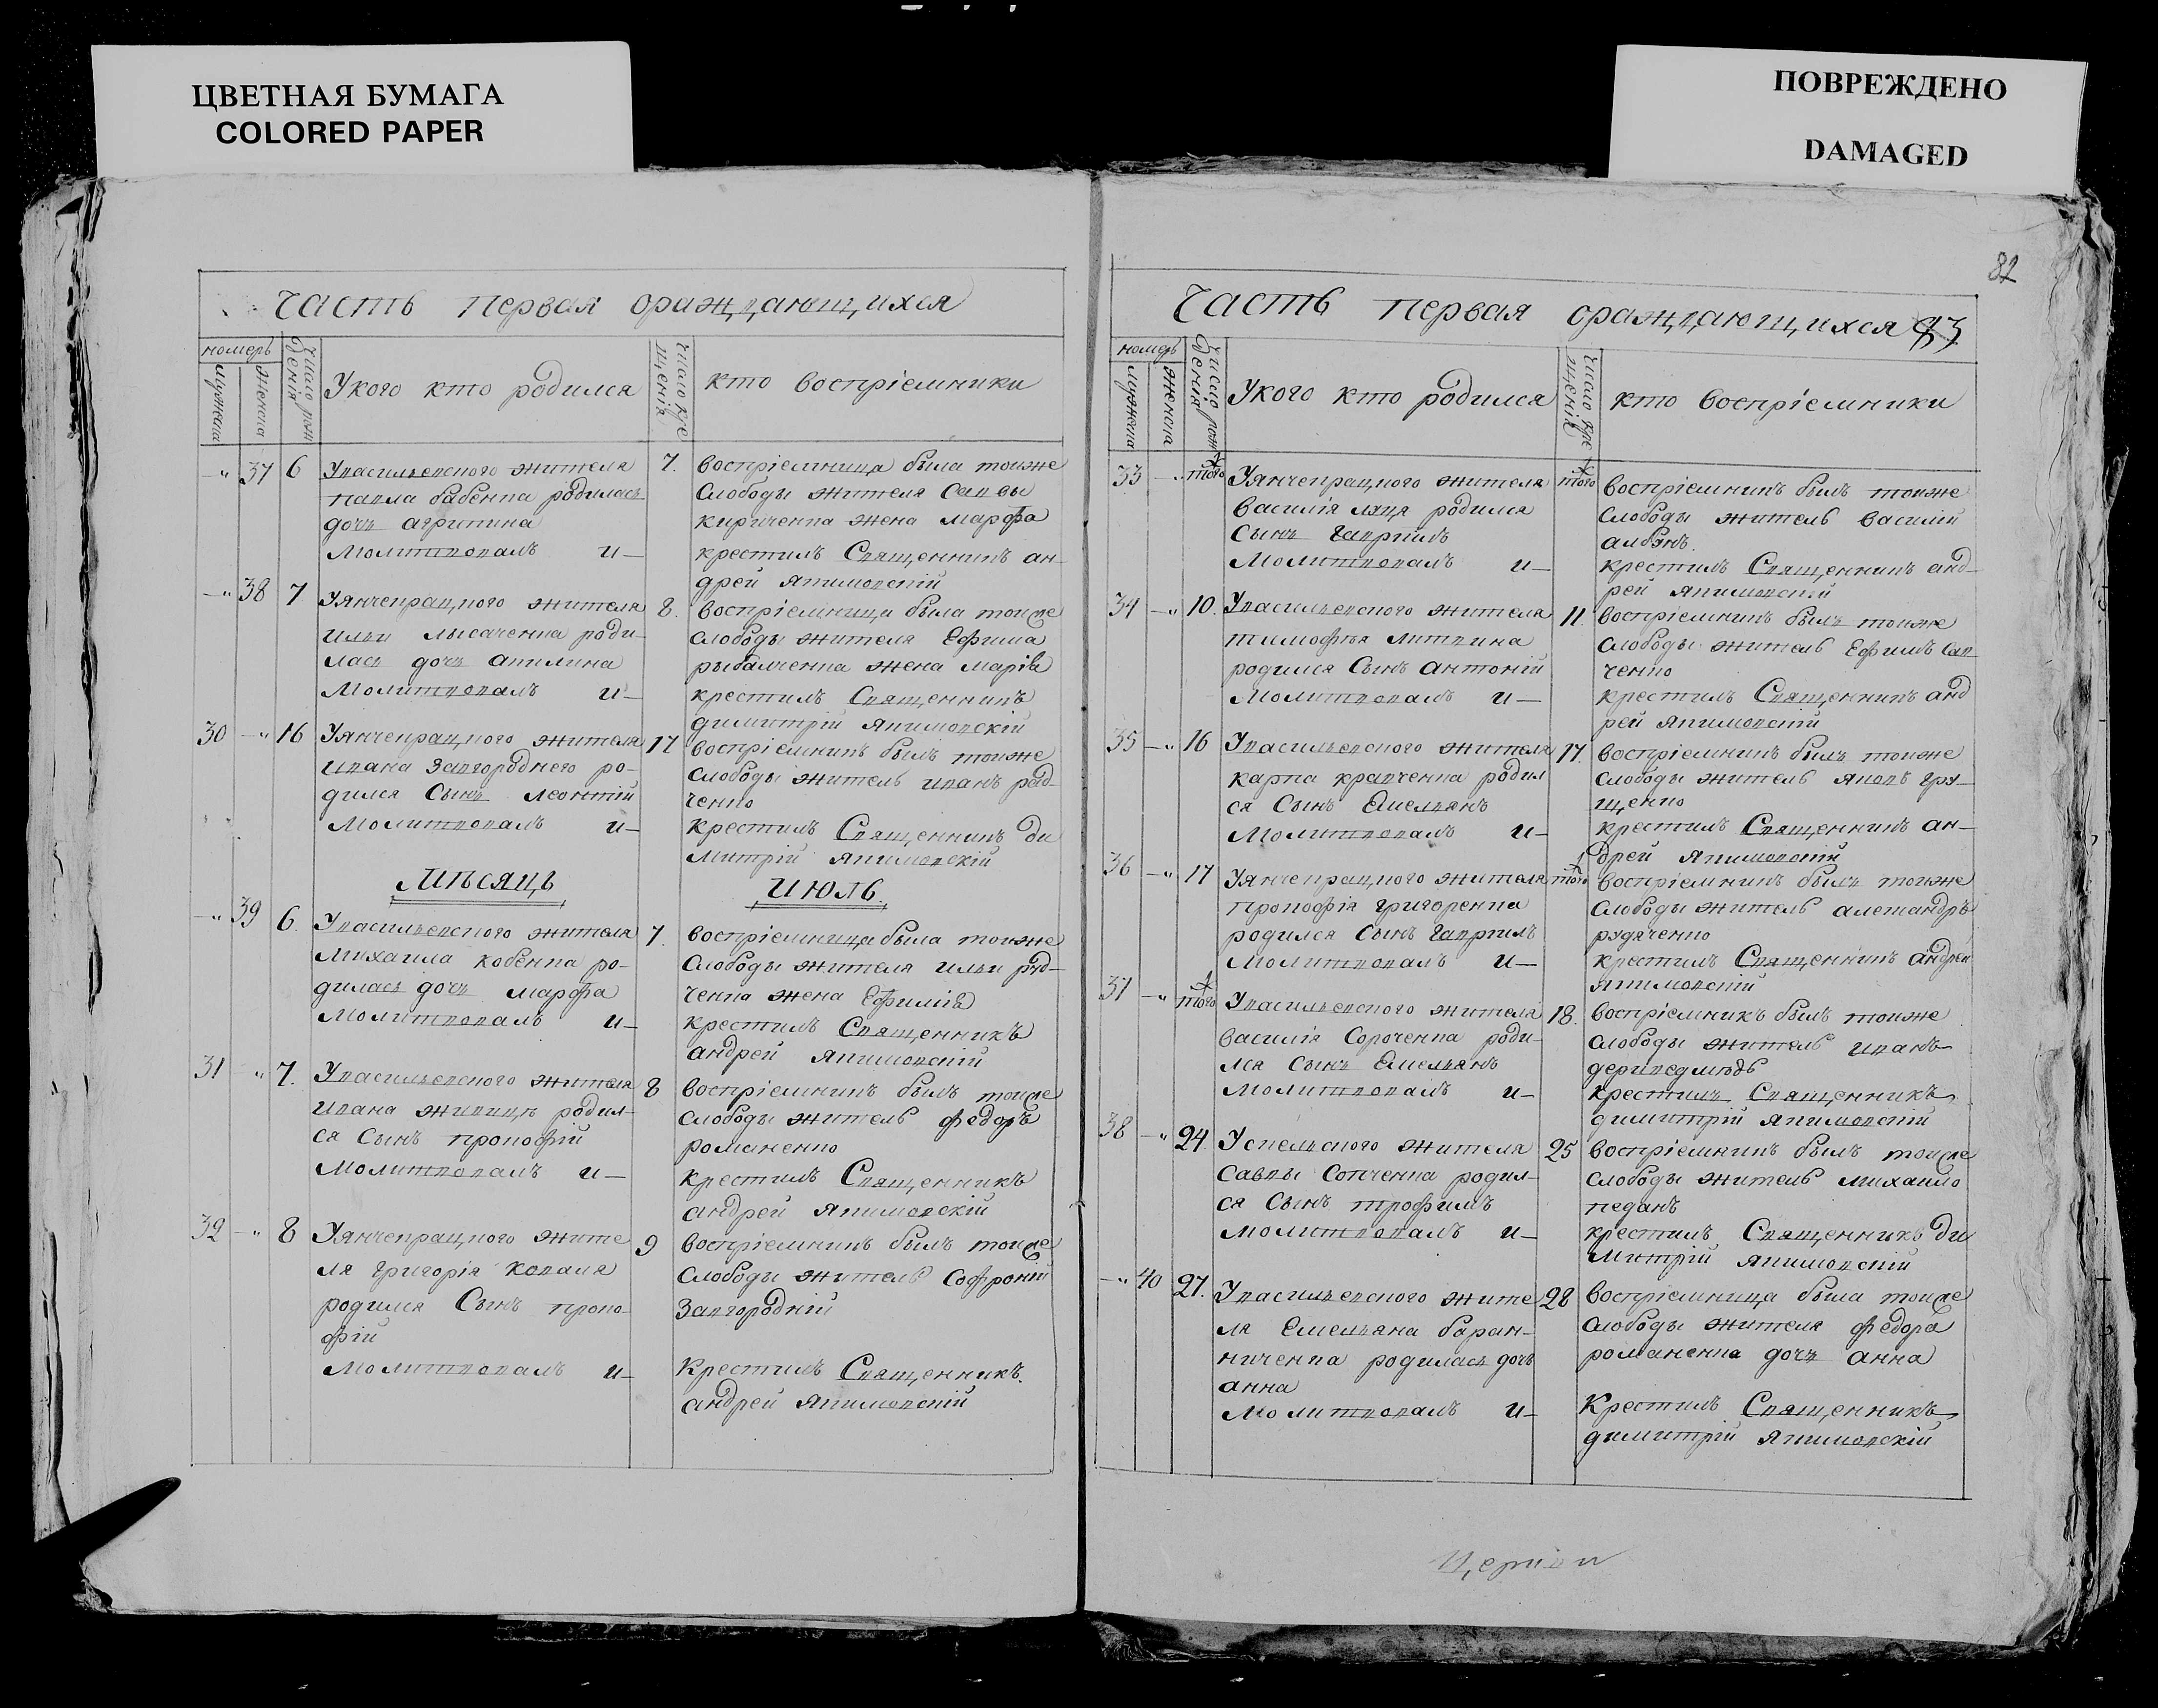 ЦВЕТНАЯ БУМАГА
COLORED PAPER
ПОВРЕЖДЕНО
DAMAGED
Часть первая ораждающихся
номеръ
мужеска
женска
Число рож
денія
Укого кто родился
Число кре
щенія
кто воспріемники
37 6 Увасильевского жителя
павла бабенка родилась
дочь агрипина
Молитвовалъ и
7. воспріемница была тоиже
Слободы жителя Саввы
кириченка жена марфа
крестилъ Священникъ ан
дрей якимовскій
38 7 Уянченрацкого жителя
Ильи лысаченка роди
лась дочь акилина
Молитвовалъ и
8. воспріемница была тоиже
слободы жителя Ефима
рыбалченка жена марія
крестилъ Священникъ
димитрій якимовскій
30 16 Уянченрацкого жителя
ивана Завгороднего ро
дился Сынъ леонтій
Молитвовалъ и
17 воспріемникъ былъ тоиже
слободы житель иванъ рад
ченко
крестилъ Священникъ ди
митрій якимовскій
Мѣсяцъ
Июль
39 6. Увасильевского жителя
михаила кобенка ро
дилась дочь марфа
Молитвовалъ и
7. воспріемница была тоиже
Слободы жителя ильи рад
ченка жена Ефимія
крестилъ Священникъ
андрей якимовскій
31 7. Увасильевского жителя
ивана родил
ся Сынъ прокофій
Молитвовалъ и
8 воспріемникъ былъ тоиже
слободы житель федоръ
романенко
крестилъ Священникъ
андрей якимовскій
32 8 Уянченрацкого жите
ля григорія коваля
родился Сынъ проко
фій
Молитвовалъ и
9 воспріемникъ былъ тоиже
Слободы житель Софроній
Завгородній
Крестилъ Священникъ
андрей якимовскій
82
Часть первая ораждающихся 83
номеръ
мужеска
женска
Число рож
денія
Укого кто родился
Число кре
щенія
кто воспріемники
33 того Уянченрацкого жителя
василія ляця родился
Сынъ гавриилъ
Молитвовалъ и
того воспріемникъ былъ тоиже
слободы житель василій
крестилъ Священникъ анд
рей якимовскій
34 10. Увасильевского жителя
тимофѣя литвина
родился Сынъ антоній
Молитвовалъ и
11. воспріемникъ былъ тоиже
слободы житель Ефимъ Сав
ченко
крестилъ Священникъ анд
рей якимовскій
35 16 Увасильевского жителя
карпа кравченка родил
ся Сынъ Емельянъ
Молитвовалъ и
17. воспріемникъ былъ тоиже
слободы житель яковъ гру
щенко
крестилъ Священникъ ан
дрей якимовскій
36 17 Уянченрацкого жителя
прокофія григоренка
родился Сынъ гавриилъ
Молитвовалъ и
того воспріемникъ былъ тоиже
слободы житель алесандръ
рудяченко
крестилъ Священникъ андрей
якимовскій
37 того Увасильевского жителя
василія Сороченка роди
лся Сынъ Емельянъ
Молитвовалъ и
18. воспріемникъ былъ тоиже
слободы житель иванъ
дериведмѣдь
крестилъ Священникъ
димитрій якимовскій
38 24. жителя
Саввы Сопченка родил
ся Сынъ трофимъ
молитвовалъ и
25 воспріемникъ былъ тоиже
слободы житель михаило
педанъ
крестилъ Священникъ ди
митрій якимовскій
40 27. Увасильевского жите
ля Емельяна баран
ниченка родилась дочь
анна
Молитвовалъ и
28 воспріемница была тоиже
слободы жителя федора
романенка дочь анна
Крестилъ Священникъ
димитрій якимовскій
Церкви